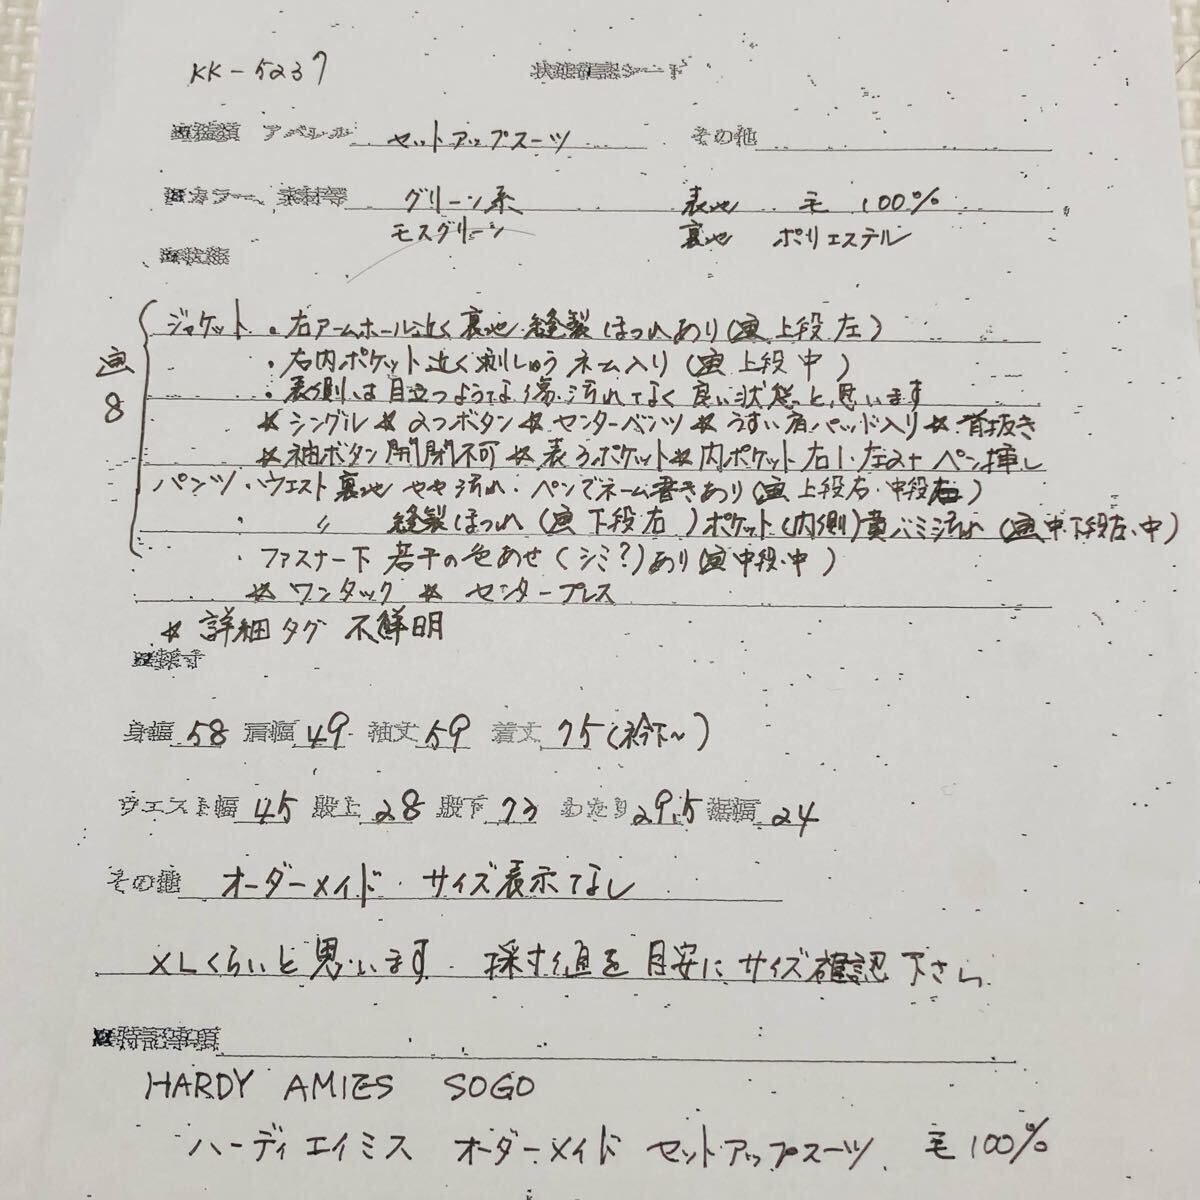 KK-5237 状態確認シート
■種類 アパレル セットアップスーツ その他
■カラー、素材等 グリーン系 表地 毛 100%
モスグリーン 裏地 ポリエステル
■状態
ジャケット ・右アームホール近く裏地 縫製ほつれあり(画上段左)
・右内ポケット近く刺しゅうネーム入り(画上段中)
画8
・表側は目立つような傷 汚れてなく良い状態と思います
* シングル * 2つボタン * センターベンツ * うすい肩パッド入り * 首抜き
* 袖ボタン開閉不可 * 表3ポケット * 内ポケット右1・左2+ペン挿し
パンツ・ウエスト裏地やや汚れ・ペンでネーム書きあり(画上段右・中段右)
・ 〃 縫製ほつれ(画下段右)ポケット(内側)黄バミ汚れ(画中下段左・中)
・ファスナー下 若干の色あせ(シミ?)あり(画中段・中)
* ワンタック * センタープレス
* 詳細タグ 不鮮明
■採寸
身幅 58 肩幅 49 袖丈 59 着丈 75(衿下~)
ウエスト幅 45 股上 28 股下 73 わたり 29.5 裾幅 24
その他 オーダーメイド・サイズ表示てなし
XLくらいと思います 採寸値を目安にサイズ確認下さい
■特記事項
HARDY AMIES SOGO
ハーディエイミス オーダーメイド セットアップスーツ 毛100%